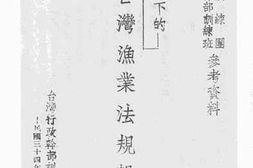 練團
部訓練班
參考資料
下的
台灣漁業法規
台灣行政幹部
民國三十四年